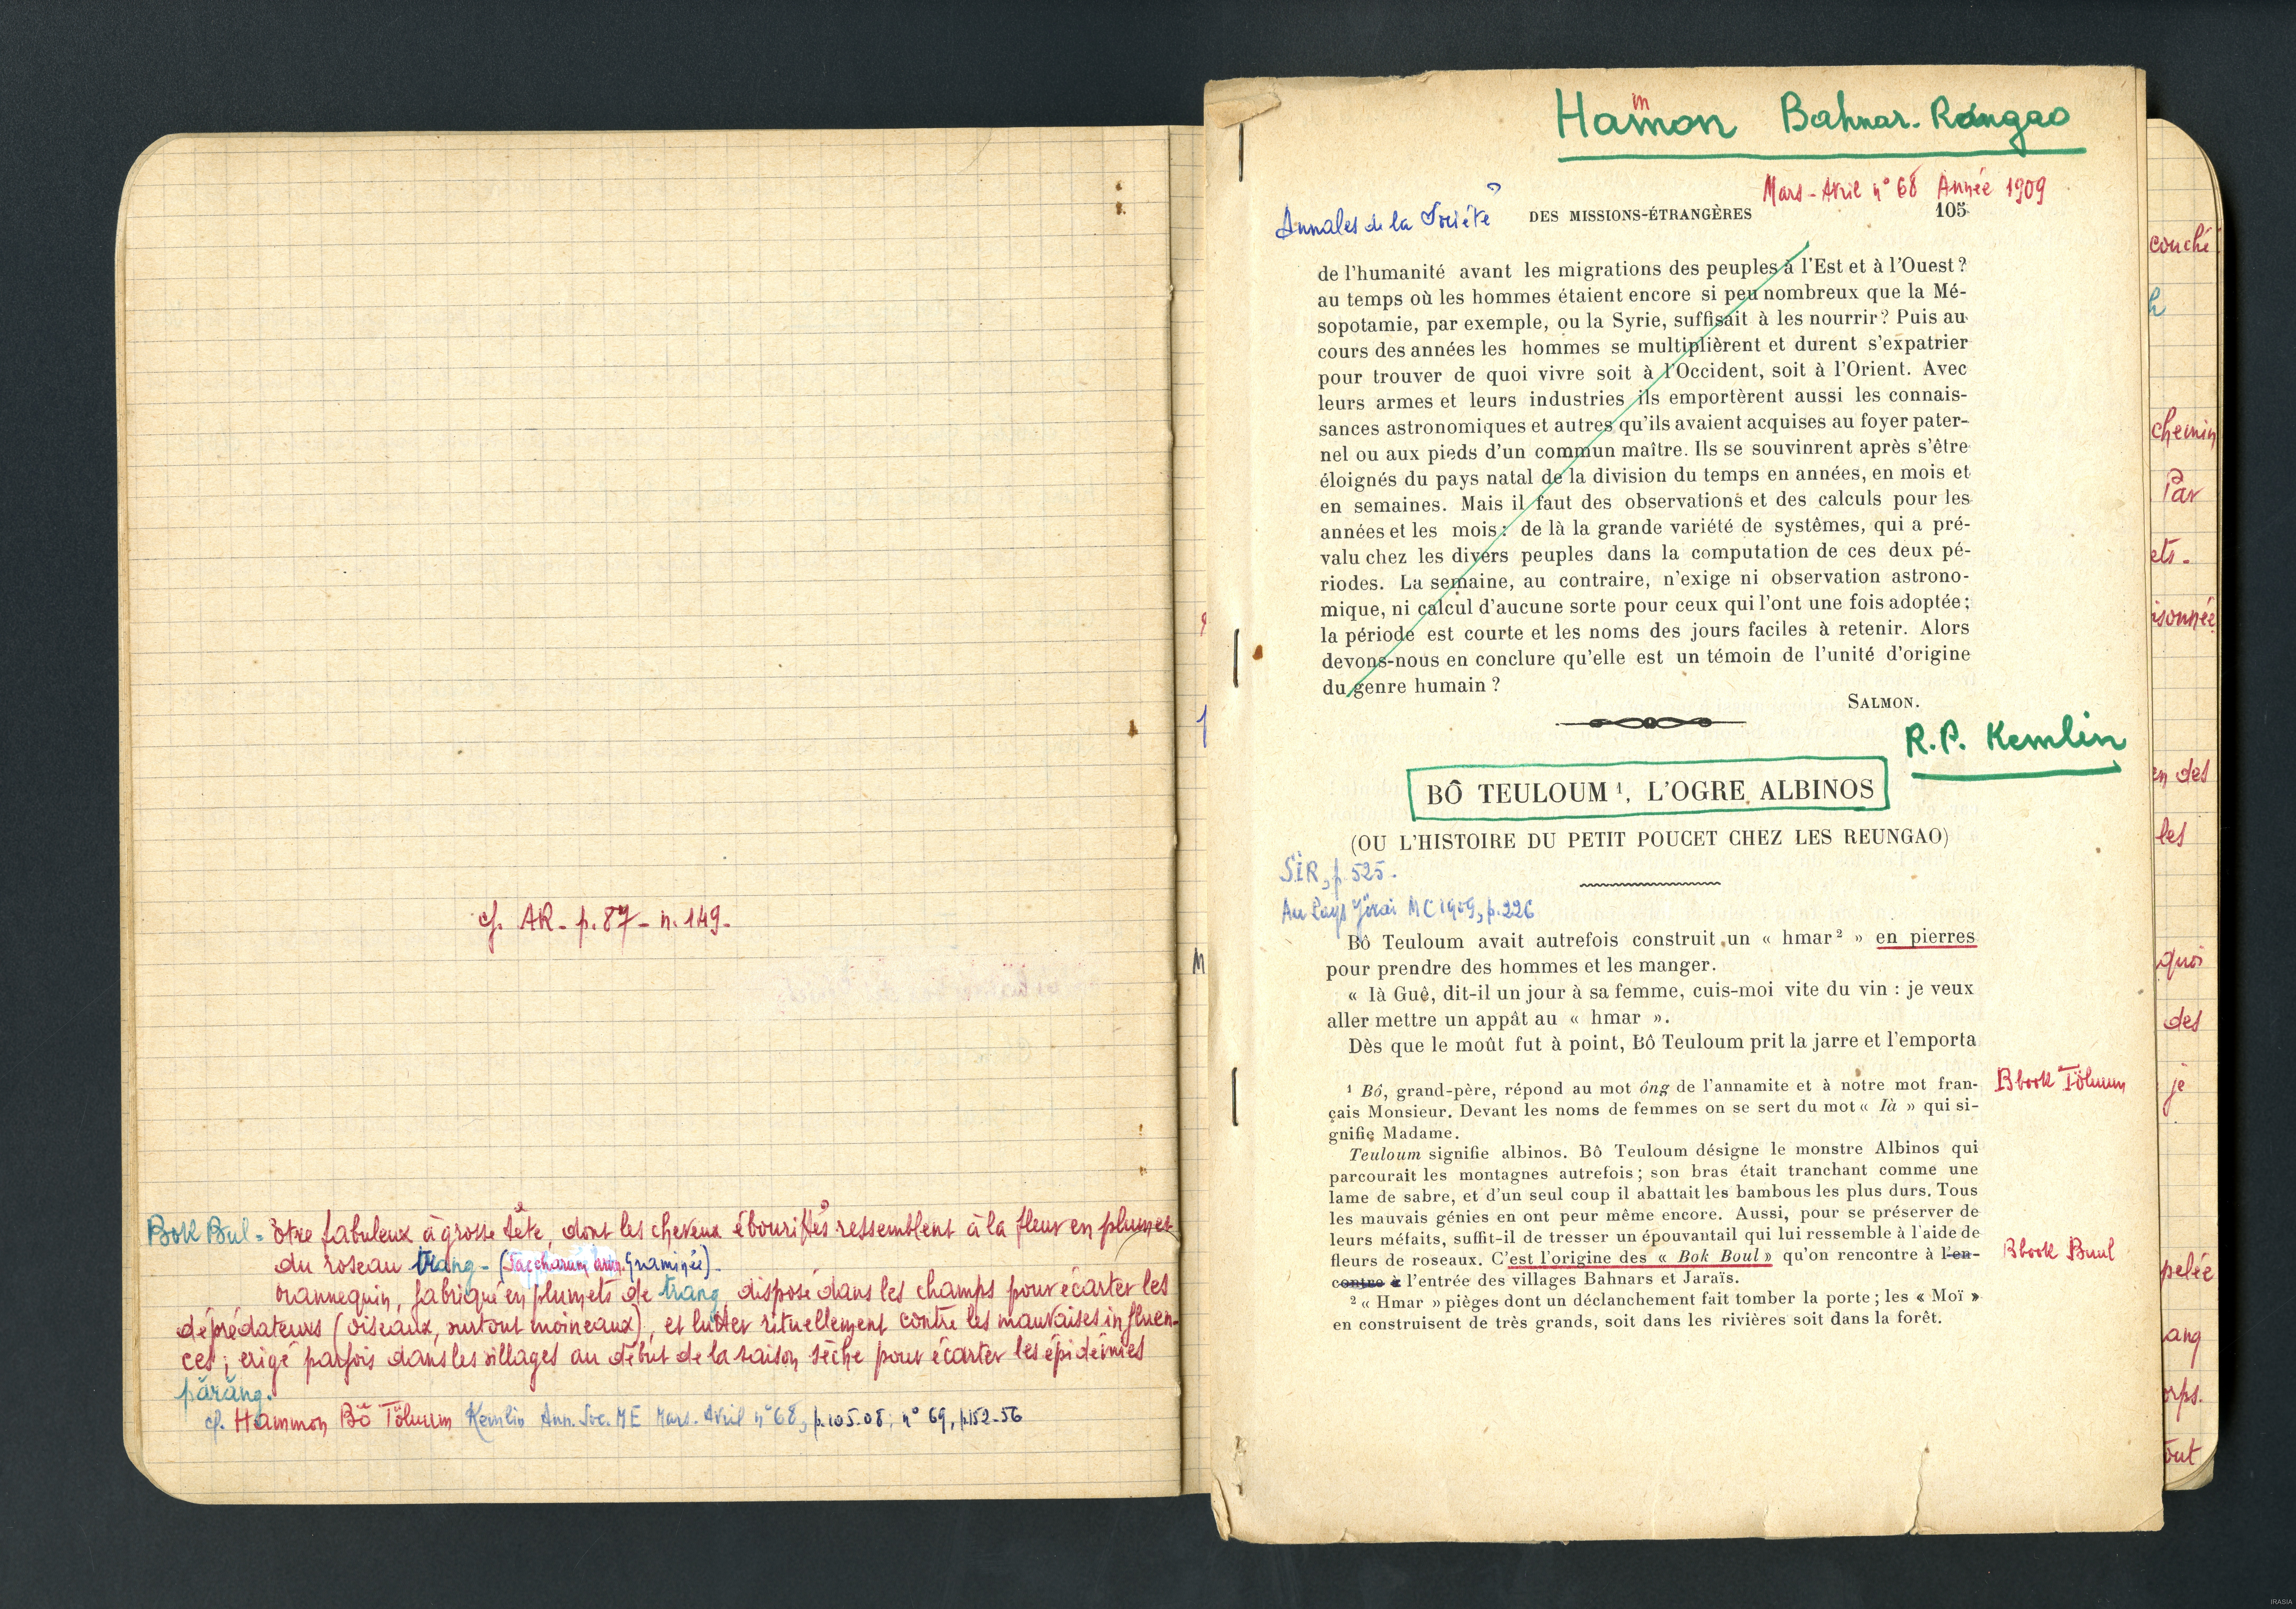 cf. AR - p.87 - n.149 -
Bok Bul = être fabuleux à grosse tête, dont les cheveux ébouriffés ressemblent à la fleur en plumet
du roseau trang - (Saccharum arun. Graminée) -
mannequin, fabriqué en plumets de trang, disposé dans les champs pour écarter les
déprédateurs (oiseaux, surtout moineaux), et lutter rituellement contre les mauvaises influen-
ces ; erigé parfois dans les villages au début de la saison sèche pour écarter les épidémies
pŏrăng.
cf. Hammon Bŏ Tölum Kemlin Ann. Soc. ME Mars. Avril n° 68, p.105-08 ; n° 69, p.152-56
Hammon Bahnar-Rongao
Mars-Avril n° 68 Année 1909
Annales de la Société DES MISSIONS-ÉTRANGÈRES 105
de l'humanité avant les migrations des peuples à l'Est et à l'Ouest ?
au temps où les hommes étaient encore si peu nombreux que la Mé-
sopotamie, par exemple, ou la Syrie, suffisait à les nourrir ? Puis au
cours des années les hommes se multiplièrent et durent s'expatrier
pour trouver de quoi vivre soit à l'Occident, soit à l'Orient. Avec
leurs armes et leurs industries ils emportèrent aussi les connais-
sances astronomiques et autres qu'ils avaient acquises au foyer pater-
nel ou aux pieds d'un commun maître. Ils se souvinrent après s'être
éloignés du pays natal de la division du temps en années, en mois et
en semaines. Mais il faut des observations et des calculs pour les
années et les mois : de là la grande variété de systêmes, qui a pré-
valu chez les divers peuples dans la computation de ces deux pé-
riodes. La semaine, au contraire, n'exige ni observation astrono-
mique, ni calcul d'aucune sorte pour ceux qui l'ont une fois adoptée ;
la période est courte et les noms des jours faciles à retenir. Alors
devons-nous en conclure qu'elle est un témoin de l'unité d'origine
du genre humain ?
SALMON.
R.P. Kemlin
BÔ TEULOUM ¹, L'OGRE ALBINOS
(OU L'HISTOIRE DU PETIT POUCET CHEZ LES REUNGAO)
SIR, p. 525.
Au Pays Jörai MC 1909, p.226
Bô Teuloum avait autrefois construit un « hmar ² » en pierres
pour prendre des hommes et les manger.
« Ià Guê, dit-il un jour à sa femme, cuis-moi vite du vin : je veux
aller mettre un appât au « hmar ».
Dès que le moût fut à point, Bô Teuloum prit la jarre et l'emporta
¹ Bô, grand-père, répond au mot ông de l'annamite et à notre mot fran-
çais Monsieur. Devant les noms de femmes on se sert du mot « Ià » qui si-
gnifie Madame.
Bbook Töluum
Teuloum signifie albinos. Bô Teuloum désigne le monstre Albinos qui
parcourait les montagnes autrefois ; son bras était tranchant comme une
lame de sabre, et d'un seul coup il abattait les bambous les plus durs. Tous
les mauvais génies en ont peur même encore. Aussi, pour se préserver de
leurs méfaits, suffit-il de tresser un épouvantail qui lui ressemble à l'aide de
fleurs de roseaux. C'est l'origine des « Bok Boul » qu'on rencontre à l'en-
contre à l'entrée des villages Bahnars et Jaraïs.
Bbook Buul
² « Hmar » pièges dont un déclanchement fait tomber la porte ; les « Moï »
en construisent de très grands, soit dans les rivières soit dans la forêt.
couché
h
chemin
Par
ets.
isonnée
en des
les
quoi
des
je
pelée
ang
orps.
out
IRASIA